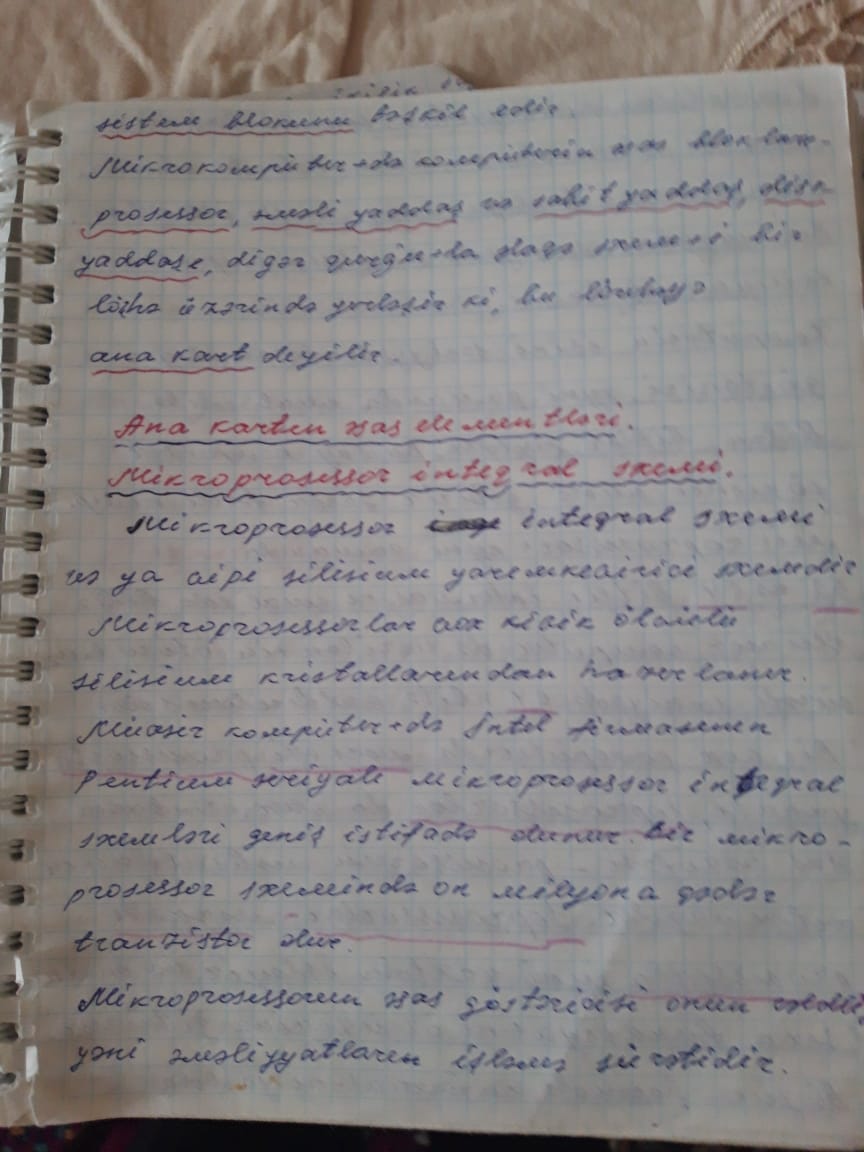 sistem blokunu təşkil edir.
Mikrokompüter-də kompüterin əsas bloklar-
prosessor, əməli yaddaş və sabit yaddaş, disk
yaddaşı, digər qurğu-la əlaqə sxem-i bir
lövhə üzərində yerləşir ki, bu lövhəyə
ana kart deyilir
Ana kartın əsas elementləri.
Mikroprosessor inteqral sxemi.
Mikroprosessor inteqral sxemi
və ya çipi silisium yarımkeçirici sxemdir
Mikroprosessorlar çox kiçik ölçülü
silisium kristallarından hazırlanır.
Müasir kompüter-də İntel firmasının
Pentium seriyalı mikroprosessor inteqral
sxemləri geniş istifadə olunur. Bir mikro-
prosessor sxemində on milyona qədər
tranzistor olur.
Mikroprosessorun əsas göstəricisi onun
yəni əməliyyatların işləmə sürətidir.